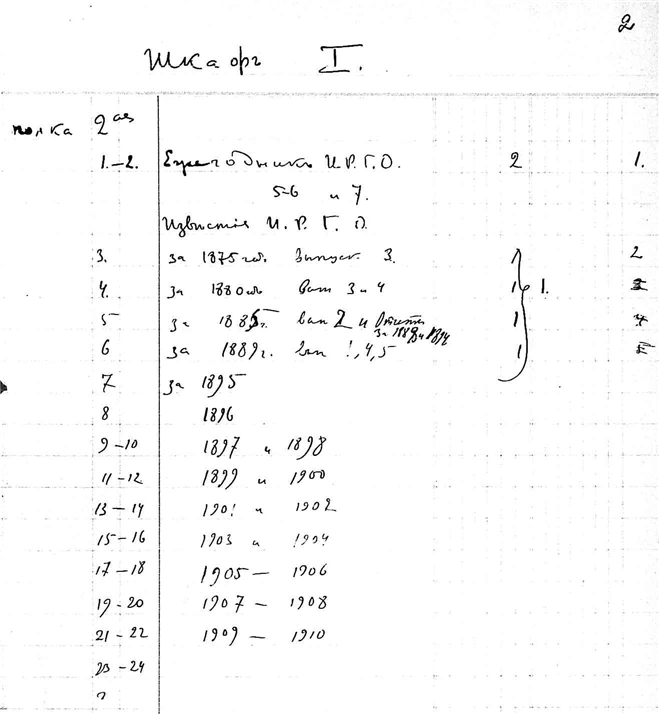 2
Шкафъ I.
полка 2ая
1.-2. Ежегодника И.Р.Г.О. 2 1.
5-6 и 7.
Известия И. Р. Г. О.
3. за 1875 Выпуск 3. 1 2
4. за 1880 вып 3 и 4 1 1.
5 за 1885г. вып 2 и Отчеты 1 4
за
6 за 1889г. вып 1,4,5 1 5
7 за 1895
8 1896
9-10 1897 и 1898
11-12 1899 и 1900
13-14 1901 и 1902
15-16 1903 и 1904
17-18 1905 — 1906
19-20 1907 — 1908
21-22 1909 — 1910
23-24